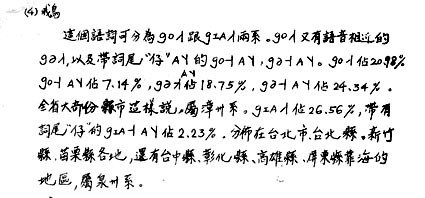 (4) 鵝鳥
這個語詞可分為go˧˥跟gɪA˧˥兩系。go˧˥又有語音相近的
gə˧˥,以及帶詞尾“仔”AY的go˧AY,gə˧AY。go˧˥佔20.98%
go˧AY佔7.14%,gə˧˥AY佔18.75%,gə˧AY佔24.34%。
全省大部份縣市這樣說,屬漳州系。gɪA˧˥佔26.56%,帶有
詞尾“仔”的gɪA˧AY佔2.23%。分佈在台北市、台北縣、新竹
縣、苗栗縣各地,還有台中縣、彰化縣、高雄縣、屏東縣靠海的
地區,屬泉州系。